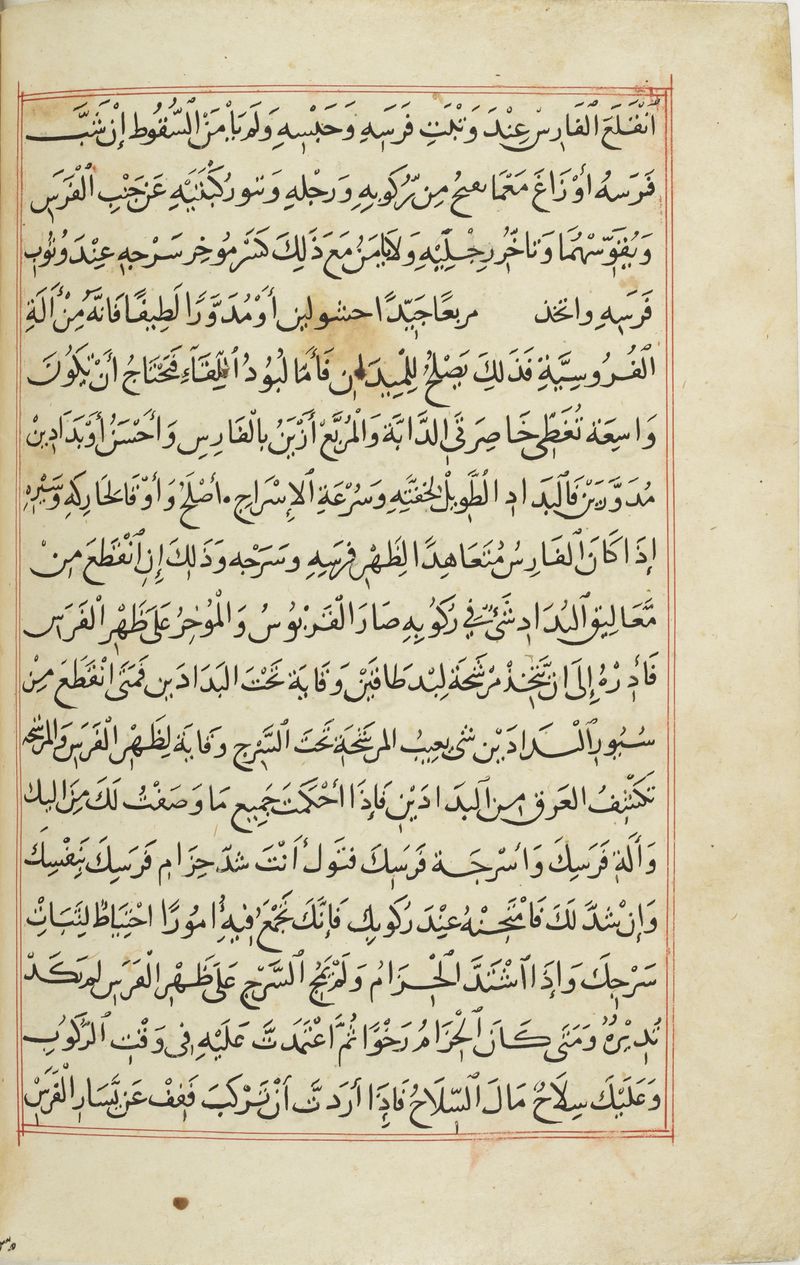 اَنْقَلَعَ ٱلْفَارِسُ عِنْدَ وَثْبَتِ فَرَسِهِ وَحَبْسِهِ وَلَمْ يَأْمَنْ ٱلسُّقُوطَ إِنْ شَبَّ
فَرَسُهُ أَوْ زَاغَ مَعَمَا يقبح مِن رُّكُوبِهِ وَرِجْلِهِ وَتنو رُكْبَتَيْهِ عَنْ جَنْبِ ٱلْفَرَسِ
وَيُقَوِّسُهُمَا وَتَأَخُّرِ رِجْلَيْهِ وَلَا يَأْمَنُ مَعَ ذَلِكَ كَسْرَ مُوخِرِ سَرْجِهِ عِنْدَ وُثُوبِ
فَرَسِهِ واتخذ مربعًا جَيِّدًا حشولين أَوْ مُدَوَّرًا لَطِيفًا فَانَّهُ مِنْ أَلَةِ
ٱلْفُرُوسِيَّةِ فَذَلِكَ يَصْلُحُ لِلْمَيْدَانِ فَأَمَّا لُبُودُ ٱللِّقَآءِ فَتَحْتَاجُ أَنْ تَكُونَ
وَاسِعَة تُغَطِّي خَاصِرَتَيِ الدَّابَّةِ وَالْمُرَبَّعُ أَزْيَنُ بِالْفَارِسِ وَأَحْسَنُ أَوْ بَدَادِيْنِ
مُدَوَّرَيْنِ فَٱلْبَدَادِ الطَّوِيلُ لِخِفَّتِهِ وَسُرْعَةِ ٱلاِسْرَاجِ أَصْلَحُ وَأَوْفَا لحَارِكِهِ وَسَيْرِهِ
إِذَا كَانَ ٱلْفَارِسُ مُتَعَاهِدًا لِظَهْرِ فَرَسِهِ وَسَرْجِهِ وَذَلِكَ إِنِ ٱنْقَطَعَ مِنْ
مَّعَالِيقِ ٱلْبُدَادِ شَئٌ فِي رُكُوبِهِ صَارَ الْقَرَبُوسُ وَالْمُوخِرُ عَلَى ظَهْرِ الْفَرَسِ
فَأَدِرْهُ إِلَى ان تَتَّخِذْ مِرْشَحَةَ لِبْدِ طَاقَيْنِ وَقَايَة تَحْتَ البَدَادَيْنِ فَمَتَى انْقَطَعَ مِنْ
سُيُورِ ٱلْبَدَادَيْنِ شئ يَعِيبُ المرشَحَة تَحْتَ السَّرْجِ وِقَايَة لِظَهْرِ الْفَرَسِ وَالمرشحه
تَكْتَنِفُ العَرَق مِنَ ٱلْبِدَادَيْنِ فَإِذَا أَحْكَمْتَ جَمِيعَ مَا وَصَفْتُ لَكَ مِنْ اليك
وَأَلَةِ فَرَسِكَ وَاسْرَجَةِ فَرَسِكَ فَتَولَّ أَنْتَ شدّ حِزَامِ فَرَسِكَ بِنَفْسِكَ
وَإِنْ شُدَّ لَكَ فَامْتَحِنْهُ عِنْدَ رُكُوبِكَ فَإِنَّكَ تَجْمَعُ فِيهِ أُمُورًا احْتِيَاطُ لِثَبَاتِ
سَرْجِكَ وَإِذَا ٱشْتَدَّ ٱلْحِزَامُ وَلَمْ يَمِجُ ٱلسَّرْجُ عَلَى ظَهْرِ الْفَرَسِ لم تَكَدْ
تُدِيْرُهُ وَمَتَى كَانَ ٱلْحِزَامُ رَخْوًا ثُمَّ اعْتَمَدتَّ عَلَيْهِ فِي وَقْتِ ٱلرُّكُوبِ
وَعَلَيْكَ سِلَاحٌ مَالَ ٱلسِّلَاحُ فَإِذَا أَرَدتَّ أَنْ تَرْكَبَ فَقِفْ عَنْ يَّسَارِ الْفَرَسِ